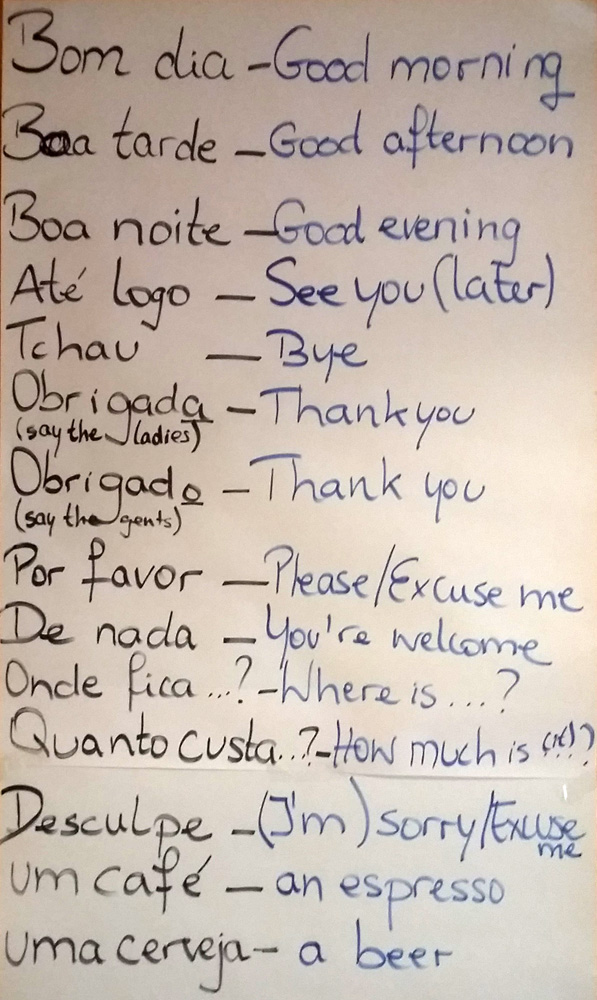 Bom dia - Good morning
Boa tarde - Good afternoon
Boa noite - Good evening
Até logo - See you (later)
Tchau - Bye
Obrigada - Thank you
(say the ladies)
Obrigado - Thank you
(say the gents)
Por favor - Please/Excuse me
De nada - You're welcome
Onde fica...? - Where is...?
Quanto custa..? - How much is (it)?
Desculpe - (I'm) sorry/Excuse
me
um café - an espresso
uma cerveja - a beer